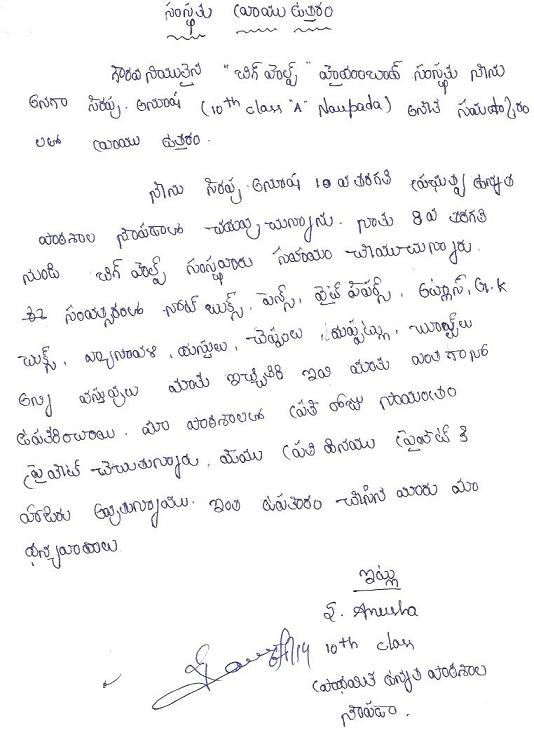 సంస్థకు వ్రాయు ఉత్తరం
గౌరవనీయులైన "బిగ్ హెల్ప్" హైదరాబాద్ సంస్థకు నేను
అనగా అనూష (10th class "A" Naupada) అనేక నమస్కారం
లతో వ్రాయు ఉత్తరం.
నేను అనూష 10 వ తరగతి ప్రభుత్వ ఉన్నత
పాఠశాల నౌపడాలో చదువు చున్నాను. నాకు 8 వ తరగతి
నుండి బిగ్ హెల్ప్ సంస్థవారు సహాయం చేయుచున్నారు.
ఈ సంవత్సరంలో నోట్ బుక్స్, పెన్స్, వైట్ పేపర్స్, అట్లాస్, G.K
బుక్స్, పద్యాలు, చెప్పులు, దుప్పట్లు,
అన్ని వస్తువులు మాకు ఇచ్చారు ఇవి మాకు ఎంతగానో
ఉపకరించాయి. మా పాఠశాలలో ప్రతి రోజు సాయంత్రం
ప్రైవేట్ చెబుతున్నారు. మేము ప్రతి దినము ప్రైవేట్ కి
హాజరు అవుతున్నాము. ఇంత ఉపకారం చేసిన మీకు మా
ధన్యవాదాలు
ఇట్లు
S. Anusha
10th class
ప్రభుత్వ ఉన్నత పాఠశాల
నౌపడ.